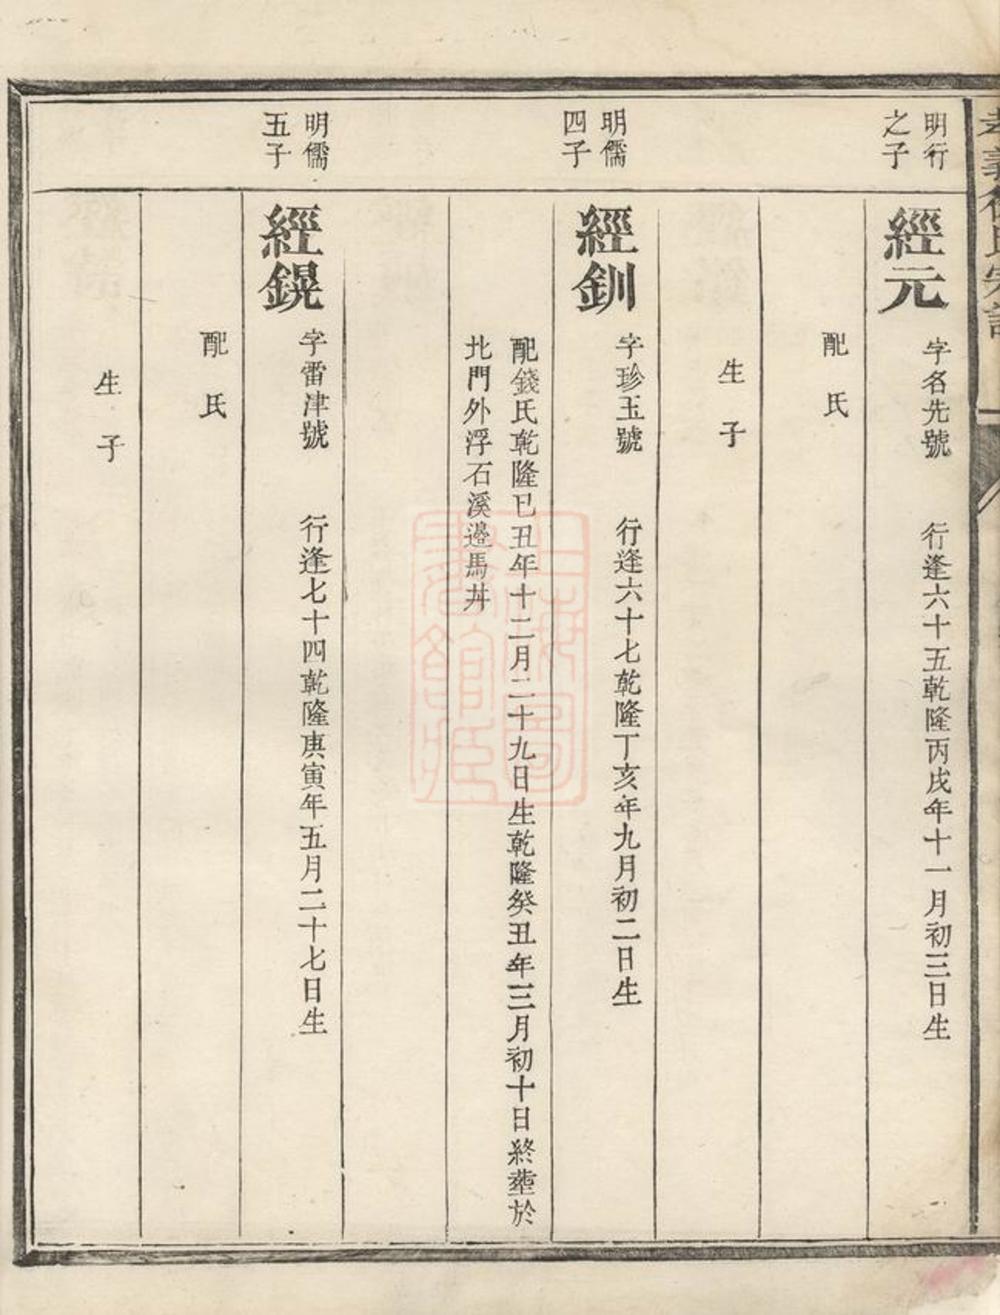 明行
之子
經元
字名先號 行逢六十五乾隆丙戌年十一月初三日生
配 氏
生 子
明儒
四子
經釧
字珍玉號 行逢六十七乾隆丁亥年九月初二日生
配錢氏乾隆巳丑年十二月二十九日生乾隆癸丑年三月初十日終塟於
北門外浮石溪邉馬丼
明儒
五子
經鎤
字雷津號 行逢七十四乾隆庚寅年五月二十七日生
配 氏
生 子
上海圖
書館藏